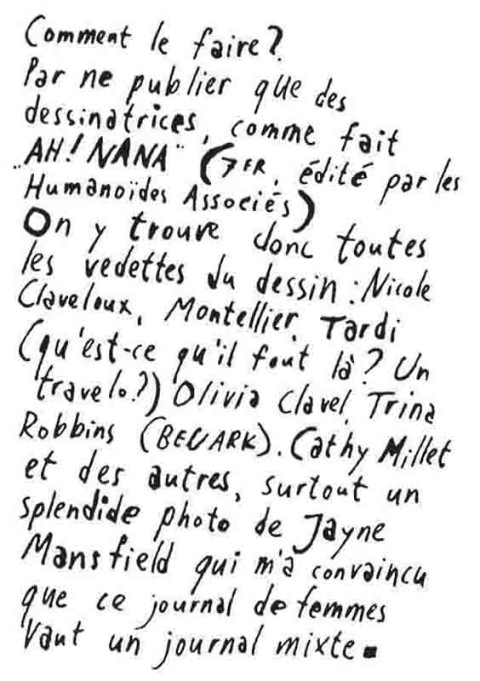 Comment le faire?
Par ne publier que des
dessinatrices, comme fait
„AH! NANA" (7 FR, édité par les
Humanoïdes Associés)
On y trouve donc toutes
les vedettes du dessin : Nicole
Claveloux, Montellier, Tardi
(qu'est-ce qu'il fout là? Un
travelo?) Olivia Clavel, Trina
Robbins (BEUARK). Cathy Millet
et des autres, surtout un
splendide photo de Jayne
Mansfield qui m'a convaincu
que ce journal de femmes
vaut un journal mixte.